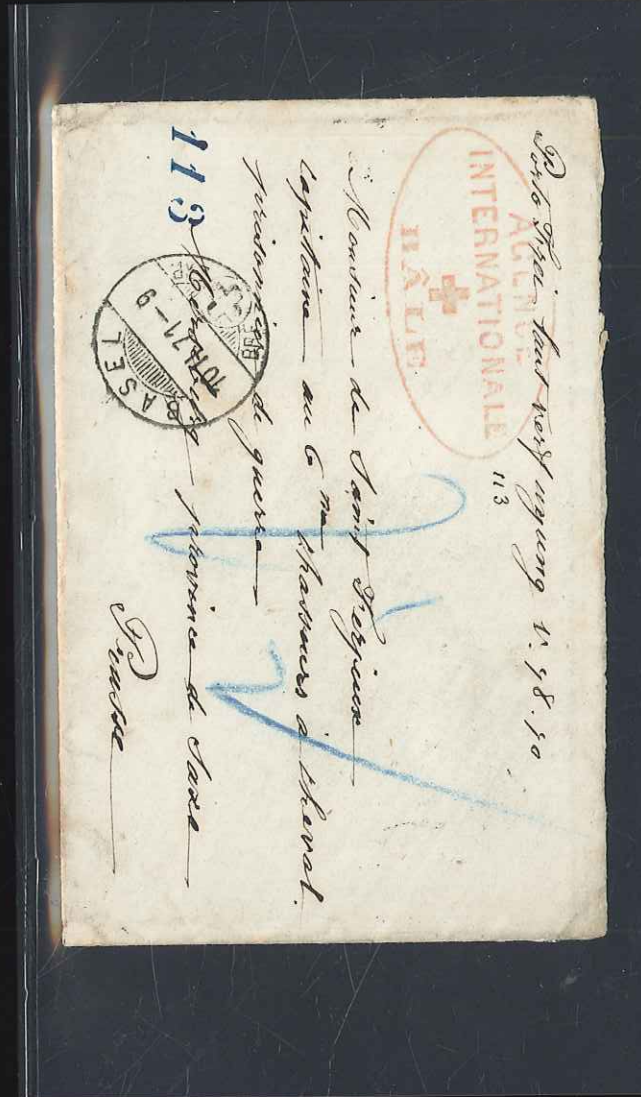 Porto frei laut verfugung v. 98.90
AGENCE
INTERNATIONALE
BÂLE
113
Monsieur de Saint Ferjeux
Capitaine au 6 me chasseurs à cheval.
prisonnier de guerre
113
Merseburg province de Saxe
Prusse
BASEL
10 II 71-9